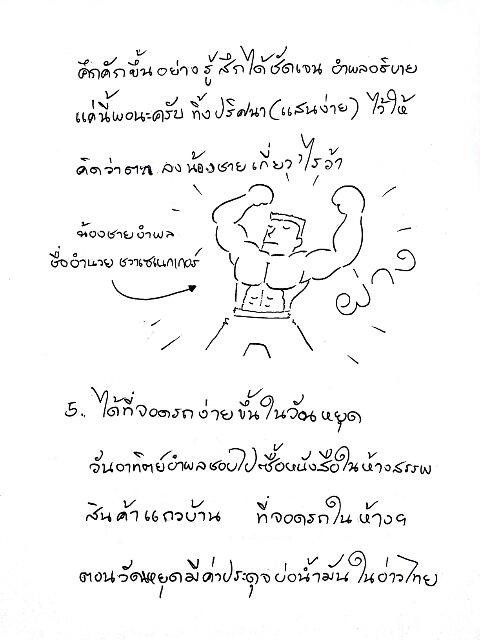 คึกคักขึ้นอย่างรู้สึกได้ชัดเจน อำพลอธิบาย
แค่นี้พอนะครับ ทิ้งปริศนา(แสนง่าย) ไว้ให้
คิดว่า ลงน้องชายเกี่ยวไรว้า
น้องชายอำพล
ชื่ออำนวย ชวาเซเนกเกอร์
5. ได้ที่จอดรถง่ายขึ้นในวันหยุด
วันอาทิตย์อำพลชอบไปซื้อหนังสือในห้างสรรพ
สินค้าแถวบ้าน ที่จอดรถในห้างฯ
ตอนวันหยุดมีค่าประดุจบ่อน้ำมันในอ่าวไทย